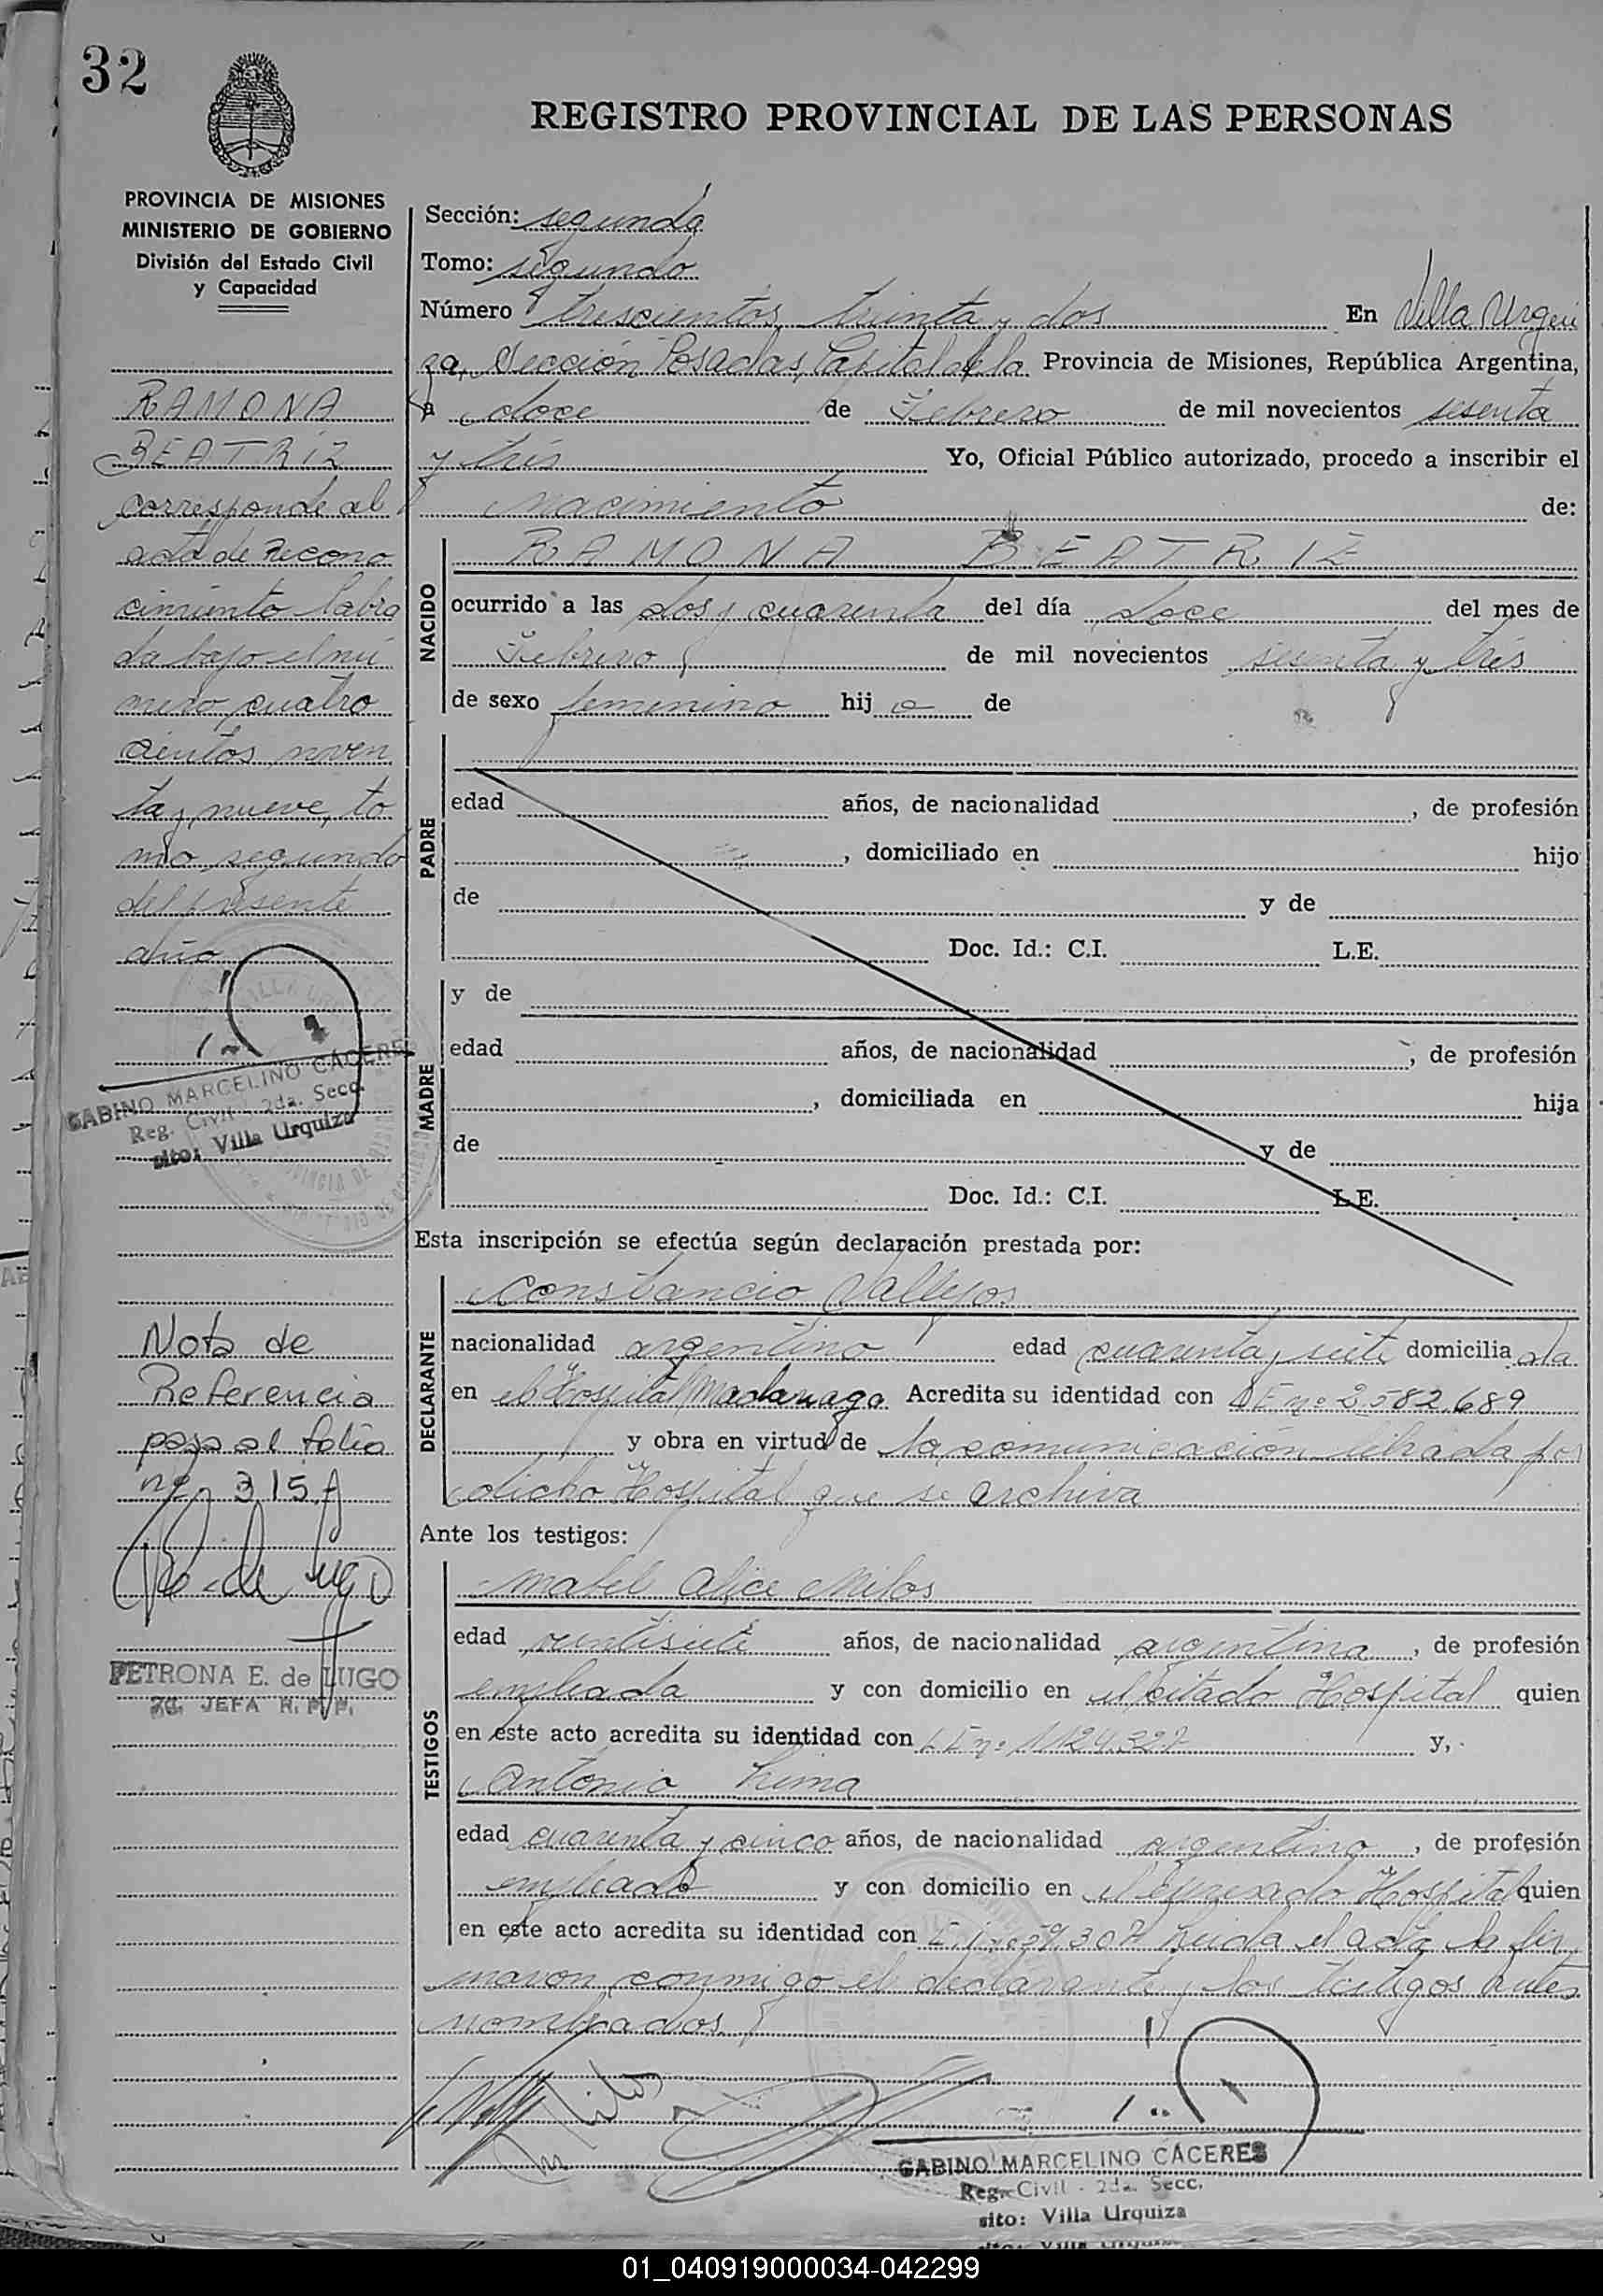 32
REGISTRO PROVINCIAL DE LAS PERSONAS
PROVINCIA DE MISIONES
MINISTERIO DE GOBIERNO
División del Estado Civil
y Capacidad
RAMONA
BEATRIZ
corresponde al
acta de Recono
cimiento labra
da bajo el nú
mero cuatro
cientos noven
ta y nueve, to
mo segundo
del presente
año
GABINO MARCELINO CACERES
Reg. Civil - 2da. Secc.
sito: Villa Urquiza
Nota de
Referencia
pasa al folio
nº 315
PETRONA E. de LUGO
JEFA R. P. P.
Sección: segunda
Tomo: segundo
Número trescientos treinta y dos En Villa Urqui
za, Sección Posadas, Capital de la Provincia de Misiones, República Argentina,
a doce de Febrero de mil novecientos sesenta
y tres Yo, Oficial Público autorizado, procedo a inscribir el
nacimiento de:
NACIDO
RAMONA BEATRIZ
ocurrido a las dos y cuarenta del día doce del mes de
Febrero de mil novecientos sesenta y tres
de sexo femenino hij a de
PADRE
edad años, de nacionalidad , de profesión
, domiciliado en hijo
de y de
Doc. Id.: C.I. L.E.
MADRE
y de
edad años, de nacionalidad , de profesión
, domiciliada en hija
de y de
Doc. Id.: C.I. L.E.
Esta inscripción se efectúa según declaración prestada por:
DECLARANTE
Constancio Vallejos
nacionalidad argentino edad cuarenta y siete domicilia da
en el Hospital Madariaga Acredita su identidad con nº 2582.689
y obra en virtud de la comunicación librada por
dicho Hospital que se archiva
Ante los testigos:
TESTIGOS
Mabel Alice Milos
edad veintisiete años, de nacionalidad argentina, de profesión
empleada y con domicilio en el citado Hospital quien
en este acto acredita su identidad con nº 1124327 y,
Antonio Lima
edad cuarenta y cinco años, de nacionalidad argentino, de profesión
empleado y con domicilio en el expresado Hospital quien
en este acto acredita su identidad con Leida el acta la fir
maron conmigo el declarante y los testigos antes
nombrados.
GABINO MARCELINO CACERES
Reg. Civil - 2da. Secc.
sito: Villa Urquiza
01_040919000034-042299